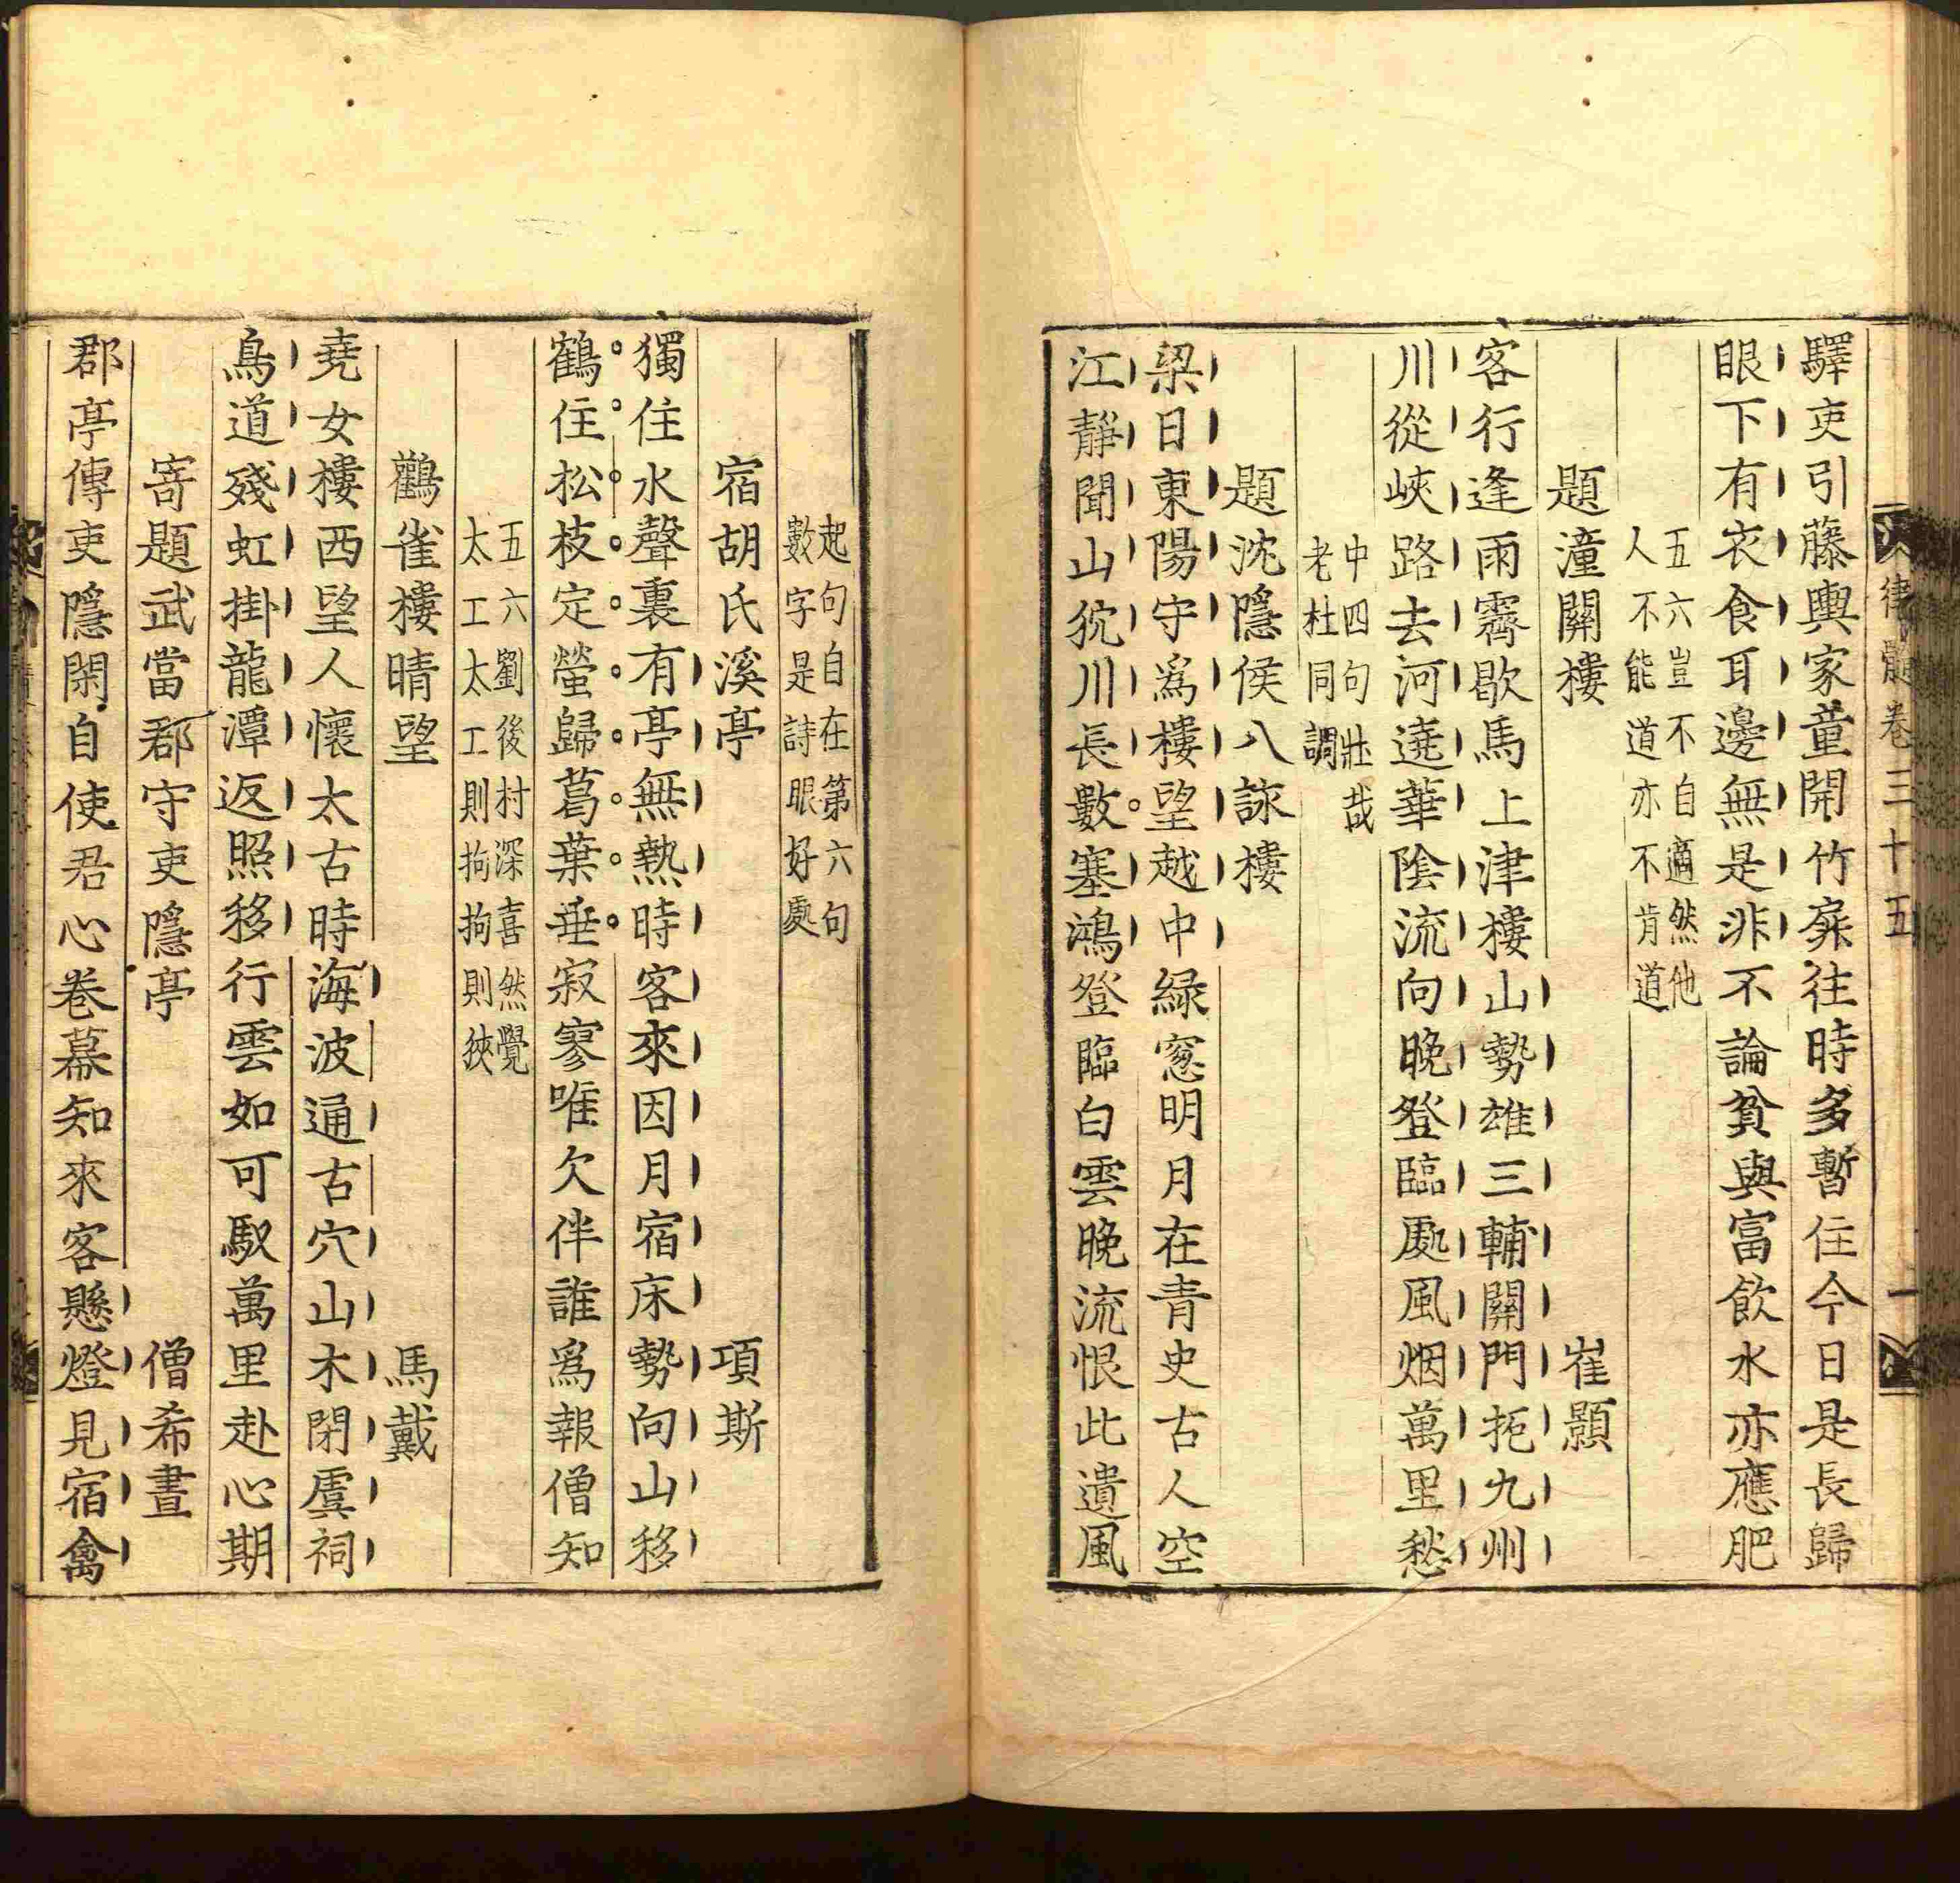 律髓卷三十五
一
驛吏引藤輿家童開竹扉往時多暫住今日是長歸
眼下有衣食耳邊無是非不論貧與富飲水亦應肥
五六豈不自適然他
人不能道亦不肯道
題潼關樓 崔顥
客行逢雨霽歇馬上津樓山勢雄三輔關門扼九州
川從峽路去河遶華陰流向晚登臨處風烟萬里愁
中四句壯哉
老杜同調
題沈隱侯八詠樓
梁日東陽守爲樓望越中綠窓明月在青史古人空
江靜聞山狖川長數塞鴻登臨白雲晚流恨此遺風
起句自在第六句
數字是詩眼好處
宿胡氏溪亭 項斯
獨住水聲裏有亭無熱時客來因月宿床勢向山移
鶴住松枝定螢歸葛葉垂寂寥唯欠伴誰爲報僧知
五六劉後村深喜然覺
太工太工則拘拘則狹
鸛雀樓晴望 馬戴
堯女樓西望人懷太古時海波通古穴山木閉虞祠
鳥道殘虹掛龍潭返照移行雲如可馭萬里赴心期
寄題武當郡守吏隱亭 僧希晝
郡亭傳吏隱閑自使君心卷幕知來客懸燈見宿禽